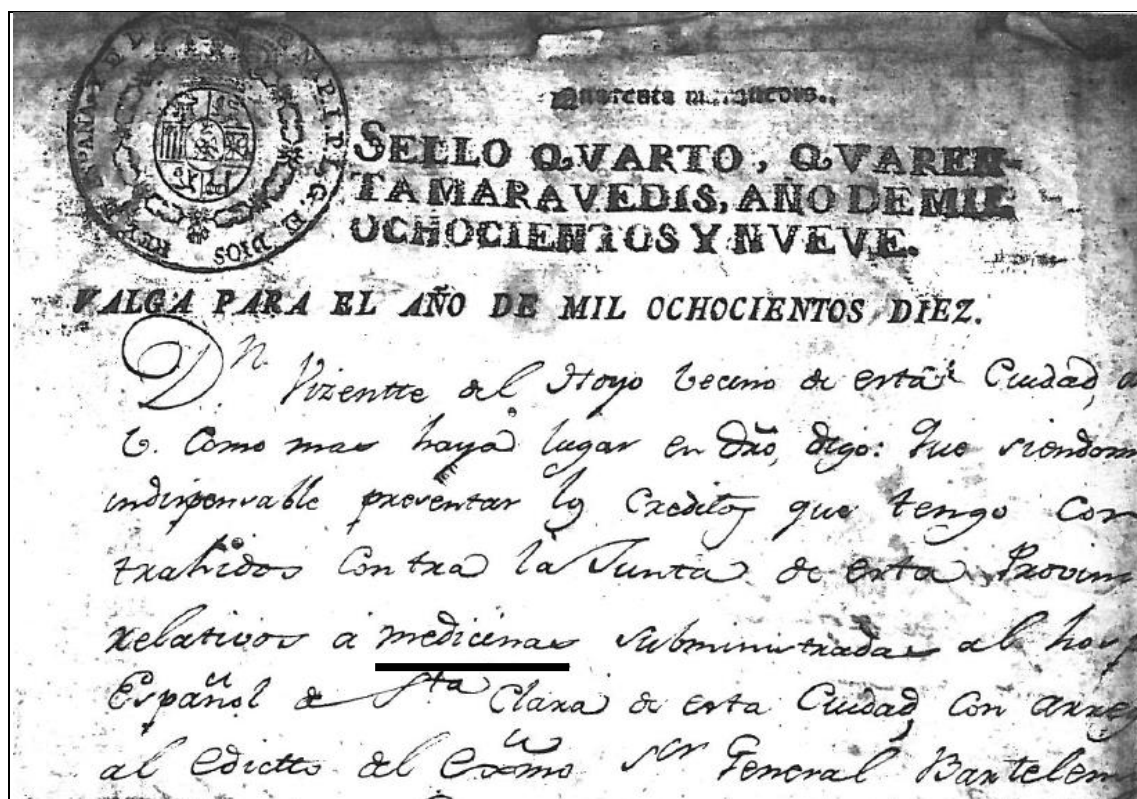 Quarenta maravedis.
SELLO QVARTO, QVAREN-
TA MARAVEDIS, AÑO DE MIL
OCHOCIENTOS Y NVEVE.
VALGA PARA EL AÑO DE MIL OCHOCIENTOS DIEZ.
Dn. Vizentte del Hoyo Vecino de esta Ciudad, a
V. Como mas haya lugar en dro, digo: Que siendom
indispensable presentar los Creditos que tengo con
trahidos Contra la Junta de esta Provin
relativos a medicinas subministradas al hosp
Español de Sta Clara de esta Ciudad, con arre
al Edictto del Exmo Sor General Bartelem
REY DE ESPAÑA Y DE D. G. DIOS